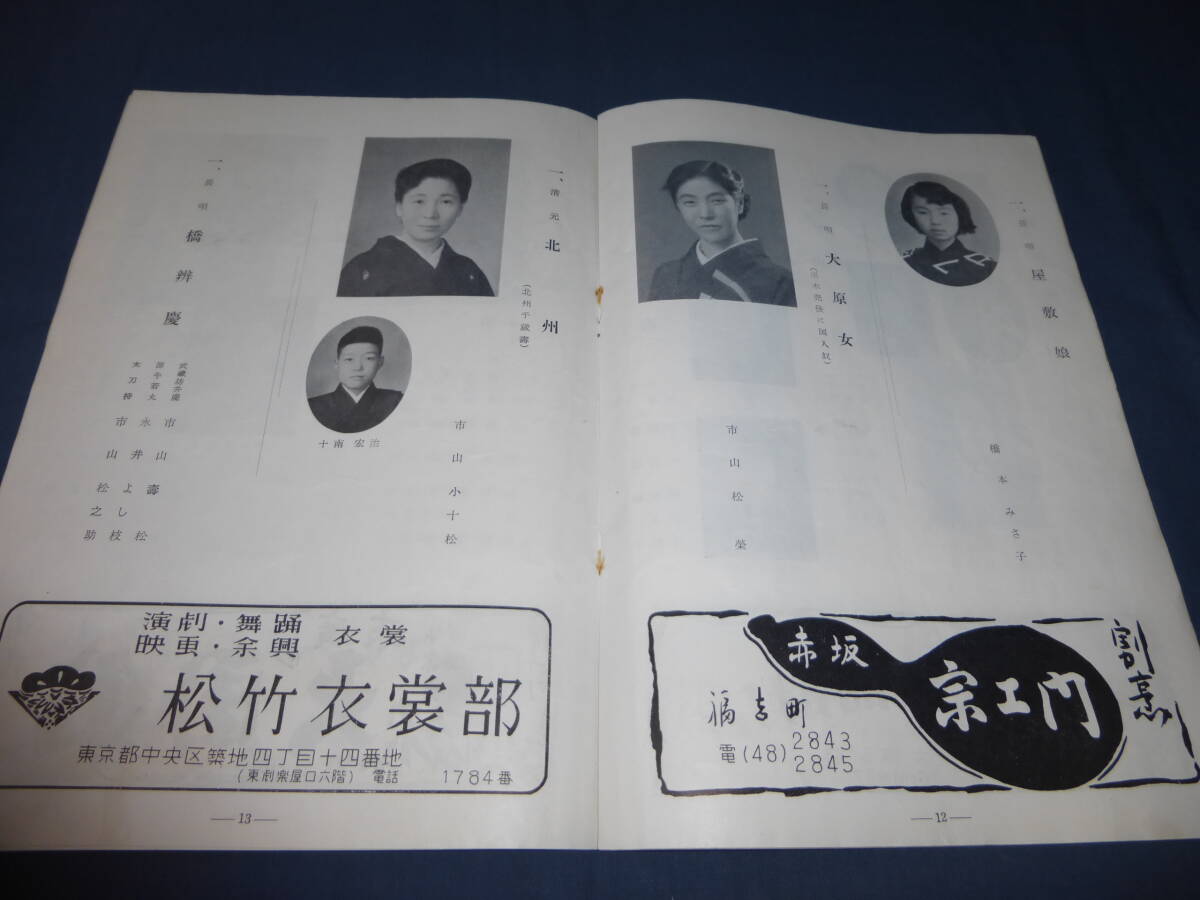 一、長唄 屋敷娘
橋本みさ子
一、長唄 大原女
市山松榮
割烹
赤坂
宗エ門
福吉町
電(48)2843
2845
—12—
一、清元 北州
(北州千歳壽)
市山小十松
十南宏治
一、長唄 橋辨慶
武蔵坊弁慶 市山壽松
源牛若丸 永井よし枝
太刀持 市山松之助
演劇・舞踊
映画・余興
衣裳
松竹衣裳部
東京都中央区築地四丁目十四番地
(東劇楽屋口六階) 電話 1784番
—13—